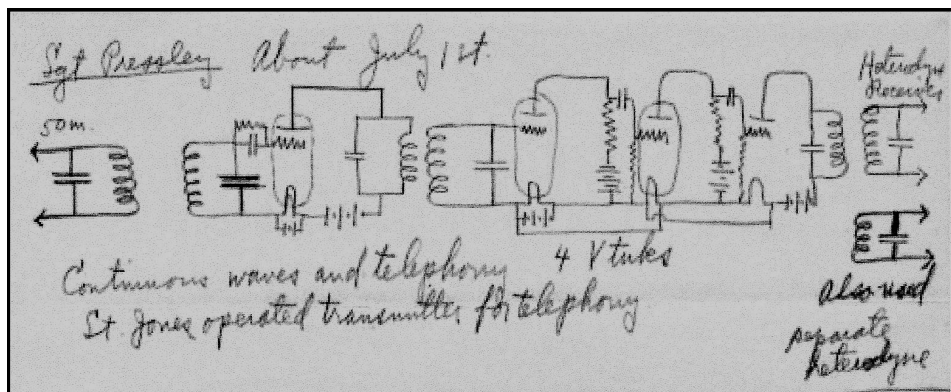 Sgt Pressley About July 1st.
Heterodyne
Receiver
50m.
4 V tubes
Continuous waves and telephony
St. Jones operated transmitter for telephony
Also used
separate
heterodyne